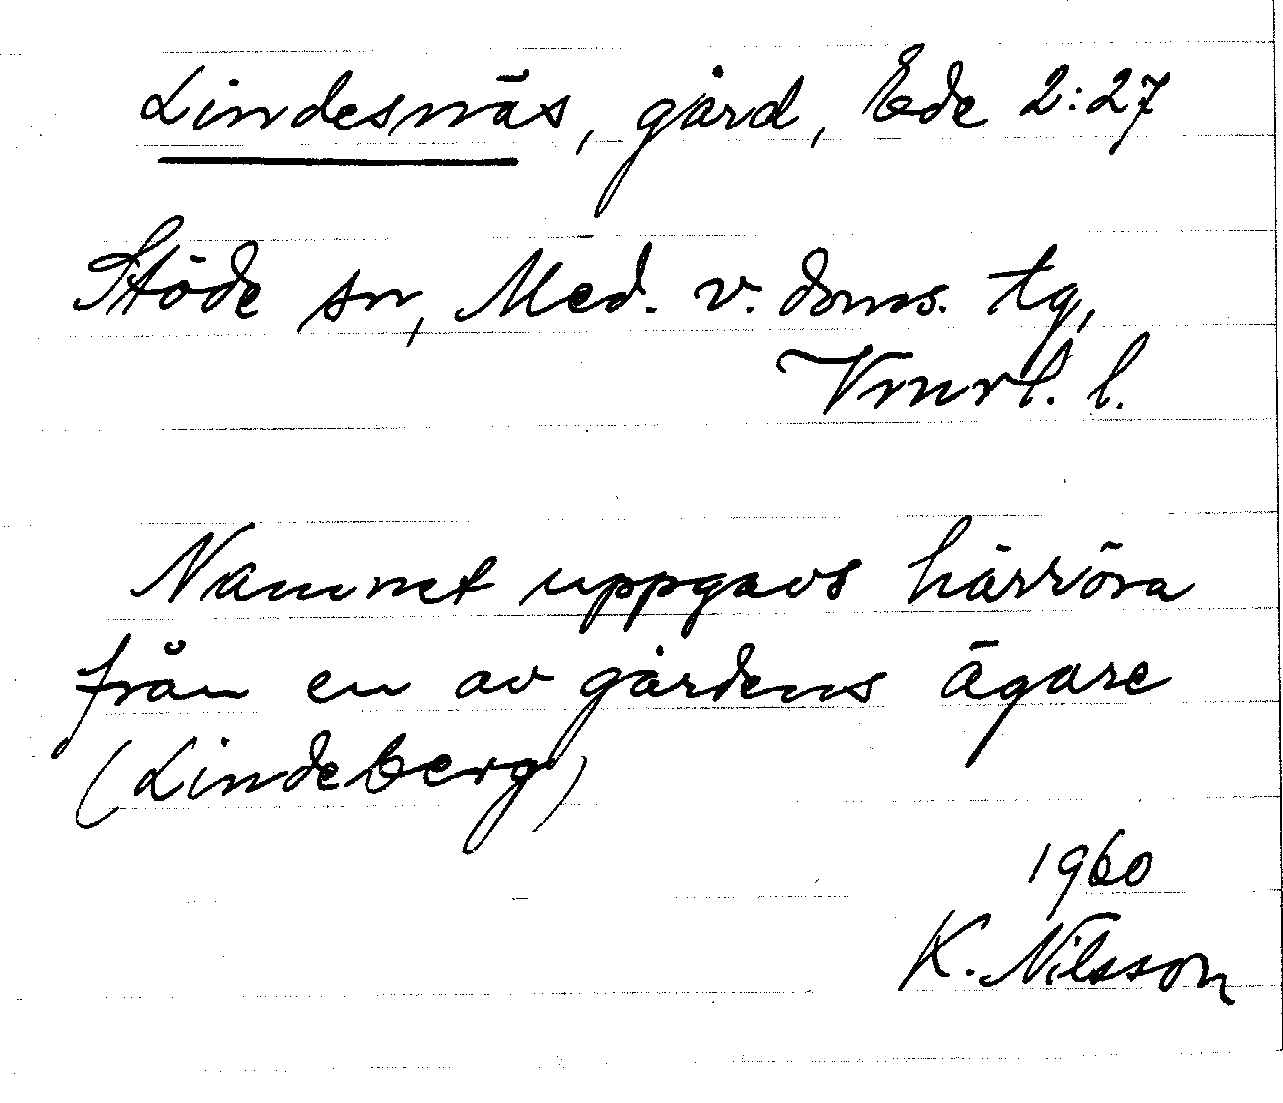 Lindesnäs, gård, Ede 2:27
Stöde sn, Med. v. doms. tg,
Vrnrl. l.
Namnet uppgavs härröra
från en av gårdens ägare
(Lindeberg)
1960
K. Nilsson